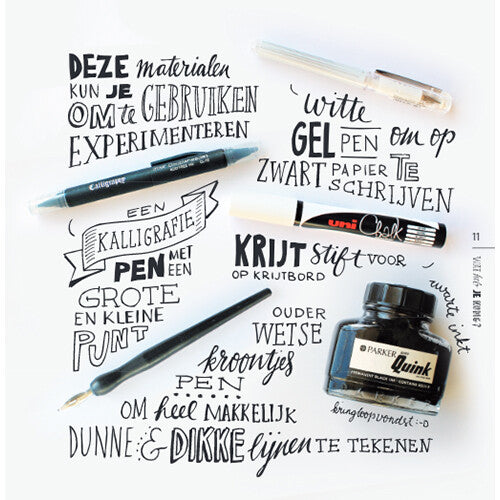 DEZE materialen
KUN JE
OM te GEBRUIKEN
EXPERIMENTEREN
witte
GEL PEN om op
ZWART PAPIER TE
SCHRIJVEN
Calligraphy
EEN
KALLIGRAFIE
PEN MET
EEN
GROTE
EN KLEINE
PUNT
uni Chalk
KRIJT stift VOOR
OP KRIJTBORD
11
WAT heb JE NODIG?
zwarte inkt
OUDER
WETSE
kroontjes
PEN
OM heel MAKKELIJK
DUNNE & DIKKE lijnen TE TEKENEN
PARKER
Quink
PERMANENT BLACK INK
kringloopvondst :-D